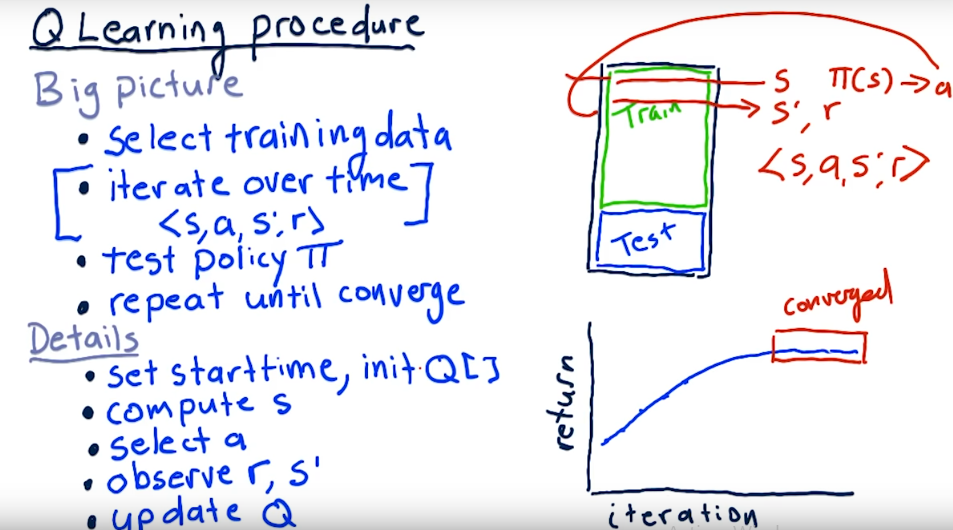 Q Learning procedure
Big picture
• select training data
[• iterate over time]
<s, a, s', r>
• test policy π
• repeat until converge
Details
• set starttime, init Q[]
• compute s
• select a
• observe r, s'
• update Q
Train
Test
s π(s) → a
s', r
<s, a, s', r>
converged
return
iteration